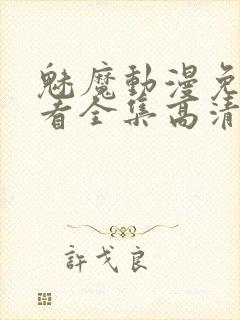 魅魔動漫免
看全集高清
許戈良